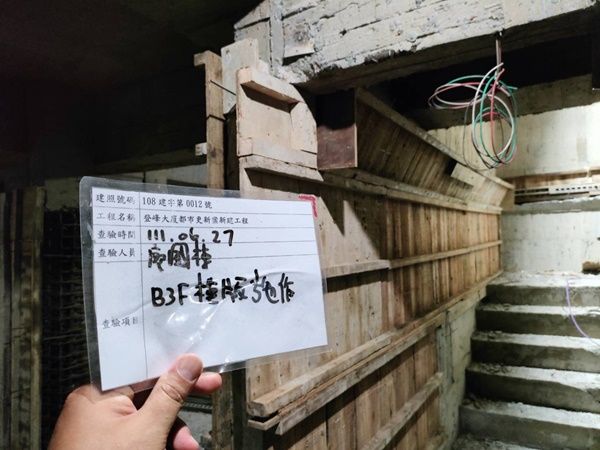 建照號碼 108 建字第 0012 號
工程名稱 登峰大廈都市更新案新建工程
查驗時間 111.04.27
查驗人員 廖國棟
查驗項目 B3F 樓版施作